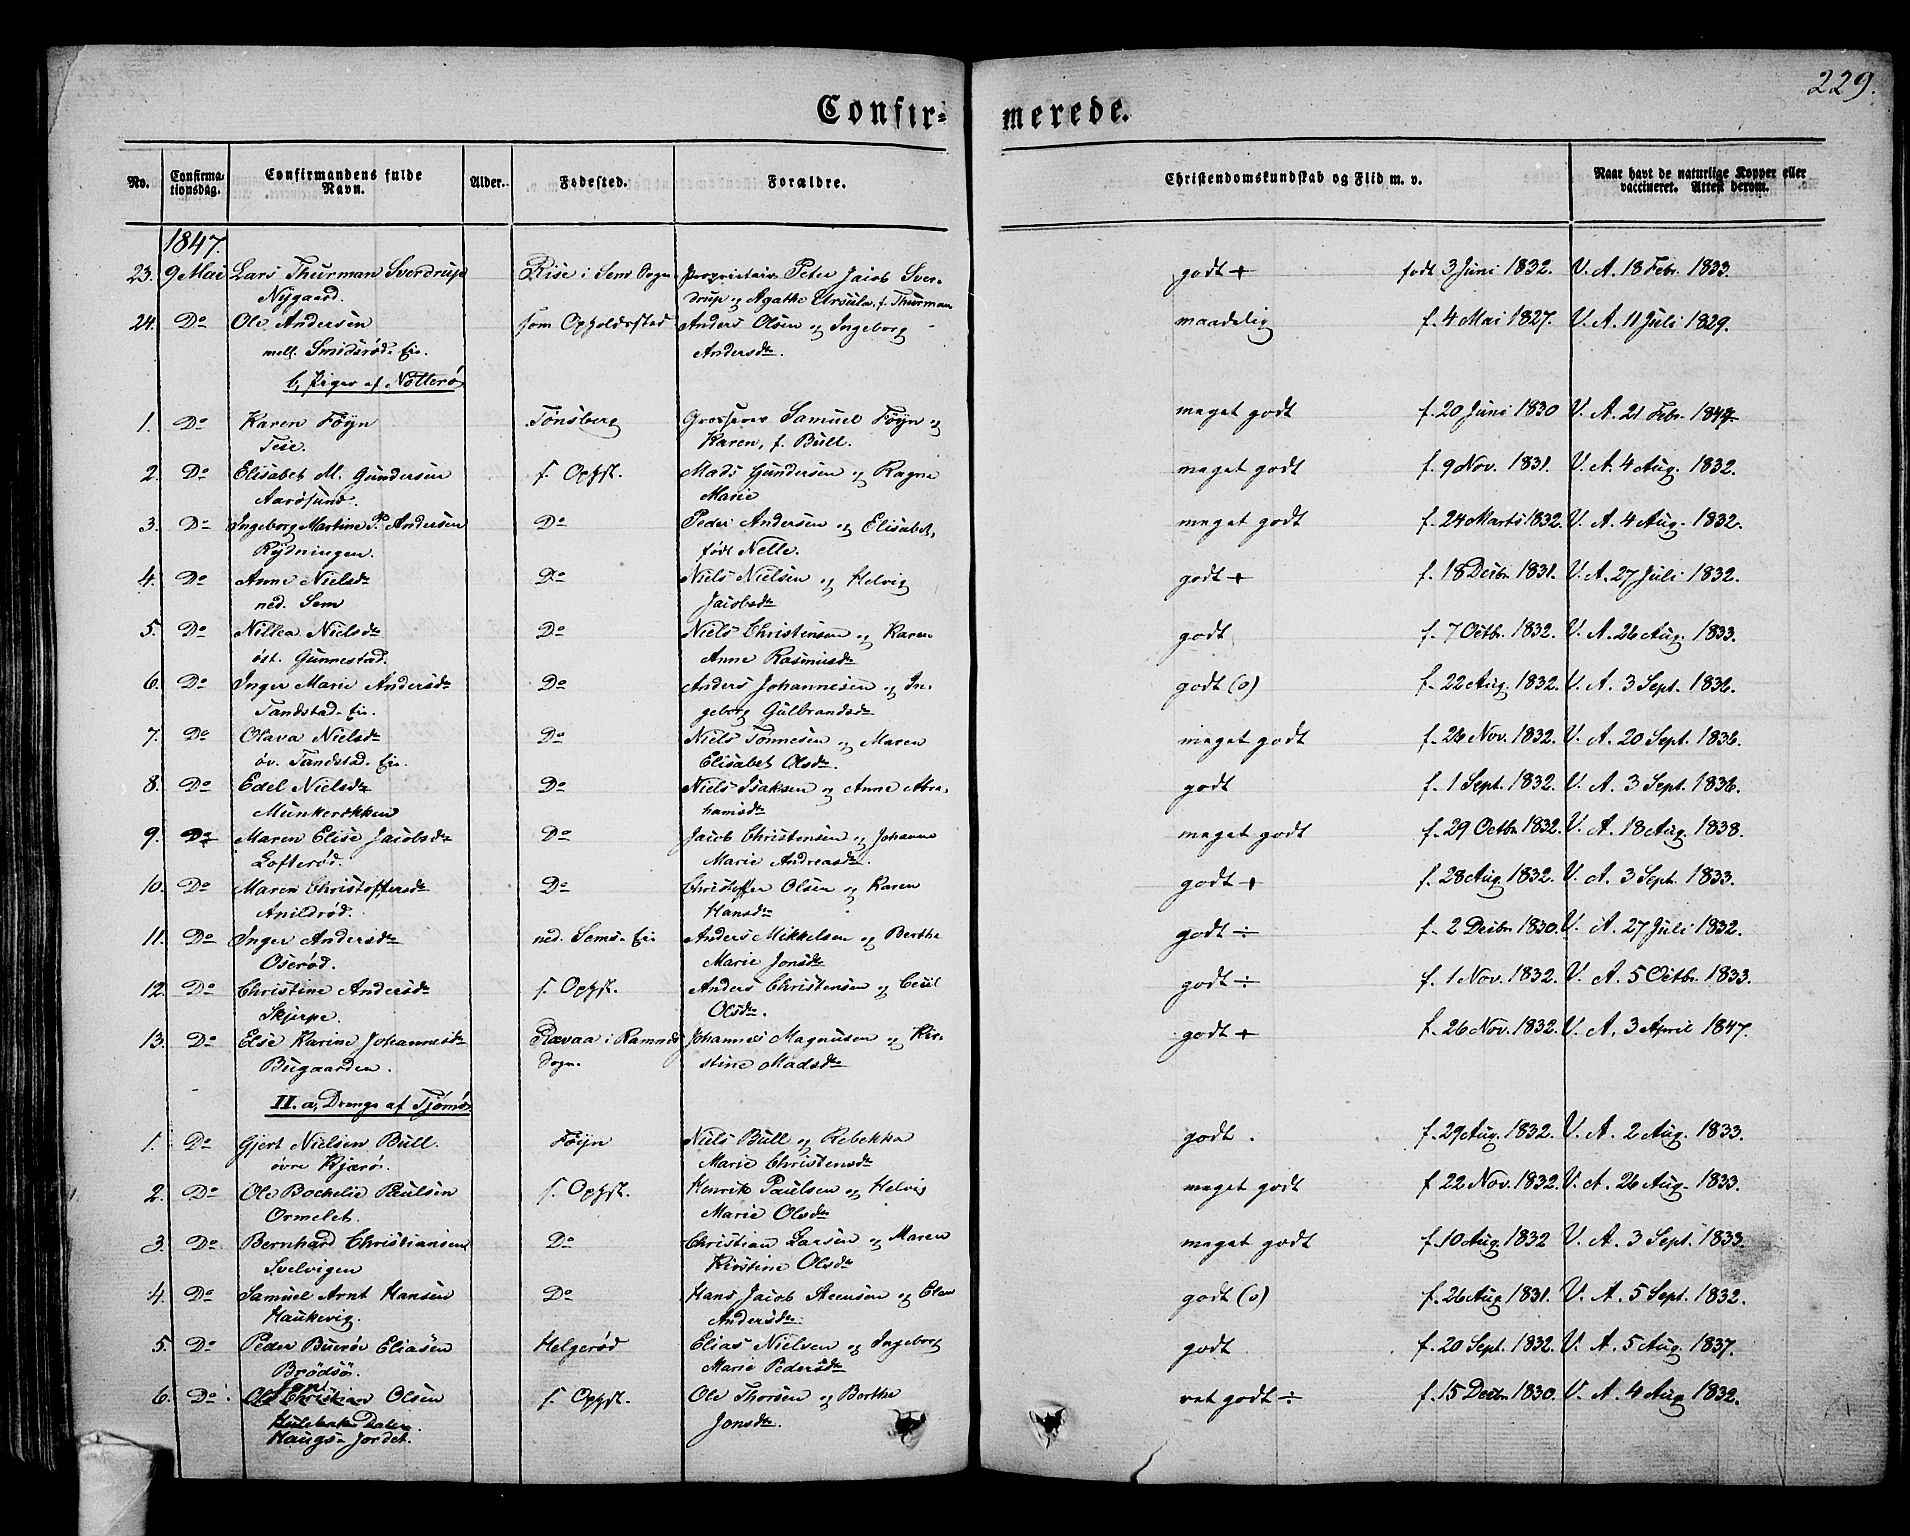 229.
Confir= merede.
No. Confirma-tionsdag. Confirmandens fulde Navn. Alder. Fødested. Forældre. Christendomskundskab og Flid m. v. Naar havt de naturlige Kopper eller vaccineret. Attest derom.
1847.
23. 9 Mai Lars Thurman Sverdrup Riise i Sems Sogn Proprietair Peter Jacob Sver- godt + født 3 Juni 1832. V. A. 18 Febr. 1833.
Nygaard. drup og Agathe Ursula f. Thurman
24. Do Ole Andersen som Opholdssted Anders Olsen og Ingeborg maadelig f. 4 Mai 1827. V. A. 11 Juli 1829.
mell. Smidsrød Eie. Andersdr.
b, Piger af Nøtterø
1. Do Karen Føyn Tønsberg Grosserer Samuel Føyn og meget godt f. 20 Juni 1830 V. A. 21 Febr. 1847.
Teie. Karen, f. Bull.
2. Do Elisabet M. Gundersen s. Ophst. Mads Gundersen og Ragne meget godt f. 9 Nov. 1831. V. A. 4 Aug. 1832.
Aarøsund. Marie
3. Do Ingeborg Martine P. Andersen Do Peder Andersen og Elisabet, meget godt f. 24 Marts 1832. V. A. 4 Aug. 1832.
Rydningen. født Nelle.
4. Do Anne Nielsdr Do Niels Nielsen og Helvig godt + f. 18 Decbr. 1831. V. A. 27 Juli 1832.
ned. Sem Jacobsdr
5. Do Nillea Nielsdr Do Niels Christensen og Karen godt f. 7 Octbr. 1832. V. A. 26 Aug. 1833.
øst. Gunnestad. Anne Rasmusdr
6. Do Inger Marie Andersdr Do Anders Johannesen og In- godt (o) f. 22 Aug. 1832. V. A. 3 Sept. 1836.
Tandstad Eie. geborg Gulbrandsdr
7. Do Olava Nielsdr Do Niels Tønnesen og Maren meget godt f. 24 Nov. 1832. V. A. 20 Sept. 1836.
øv. Tandstad Eie. Elisabet Olsdr.
8. Do Edel Nielsdr Do Niels Isaksen og Anne Abra- godt f. 1 Sept. 1832. V. A. 3 Sept. 1836.
Munkerekken hamsdr
9. Do Maren Elise Jacobsdr Do Jacob Christensen og Johanne meget godt f. 29 Octbr. 1832. V. A. 18 Aug. 1838.
Lofterød. Marie Andreasdr.
10. Do Maren Christoffersdr Do Christoffer Olsen og Karen godt + f. 28 Aug. 1832. V. A. 3 Sept. 1833.
Anildrød. Hansdr
11. Do Inger Andersdr ned. Sems Eie Anders Mikkelsen og Berthe godt ÷ f. 2 Decbr. 1830. V. A. 27 Juli 1832.
Oserød. Marie Jonsdr
12. Do Christine Andersdr s. Ophst. Anders Christensen og Cecil godt ÷ f. 1 Nov. 1832. V. A. 5 Octbr. 1833.
Skjerpe. Olsdr.
13. Do Else Karine Johannesdr Revaa i Ramnes Johannes Magnusen og Kir- godt + f. 26 Nov. 1832. V. A. 3 April 1847.
Bugaarden. Sogn. stine Madsdr
II. a, Drenge af Tjømø
1. Do Gjert Nielsen Bull. Føyn Niels Bull og Rebekka godt. f. 29 Aug. 1832. V. A. 2 Aug. 1833.
øvre Kjærø. Marie Christensdr
2. Do Ole Bochelie Paulsen s. Ophst. Henrik Paulsen og Helvig meget godt f. 22 Nov. 1832. V. A. 26 Aug. 1833.
Ormelet. Marie Olsdr
3. Do Bernhard Christiansen Do Christian Larsen og Maren meget godt f. 10 Aug. 1832 V. A. 3 Sept. 1833.
Svelvigen Kirstine Olsdr
4. Do Samuel Arnt Hansen Do Hans Jacob Steensen og Elen godt (o) f. 26 Aug. 1831. V. A. 5 Sept. 1832.
Haukevig. Andersdr.
5. Do Peder Buerø Eliasen Helgerød Elias Nielsen og Ingeborg godt f. 20 Sept. 1832. V. A. 5 Aug. 1837.
Brødsø. Marie Pedersdr
6. Do Ole Christian Olsen s. Ophst. Ole Thorsen og Berthe ret godt ÷ f. 15 Decbr. 1830. V. A. 4 Aug. 1832.
Hulebak Jonsdr
Haugs-Jordet.